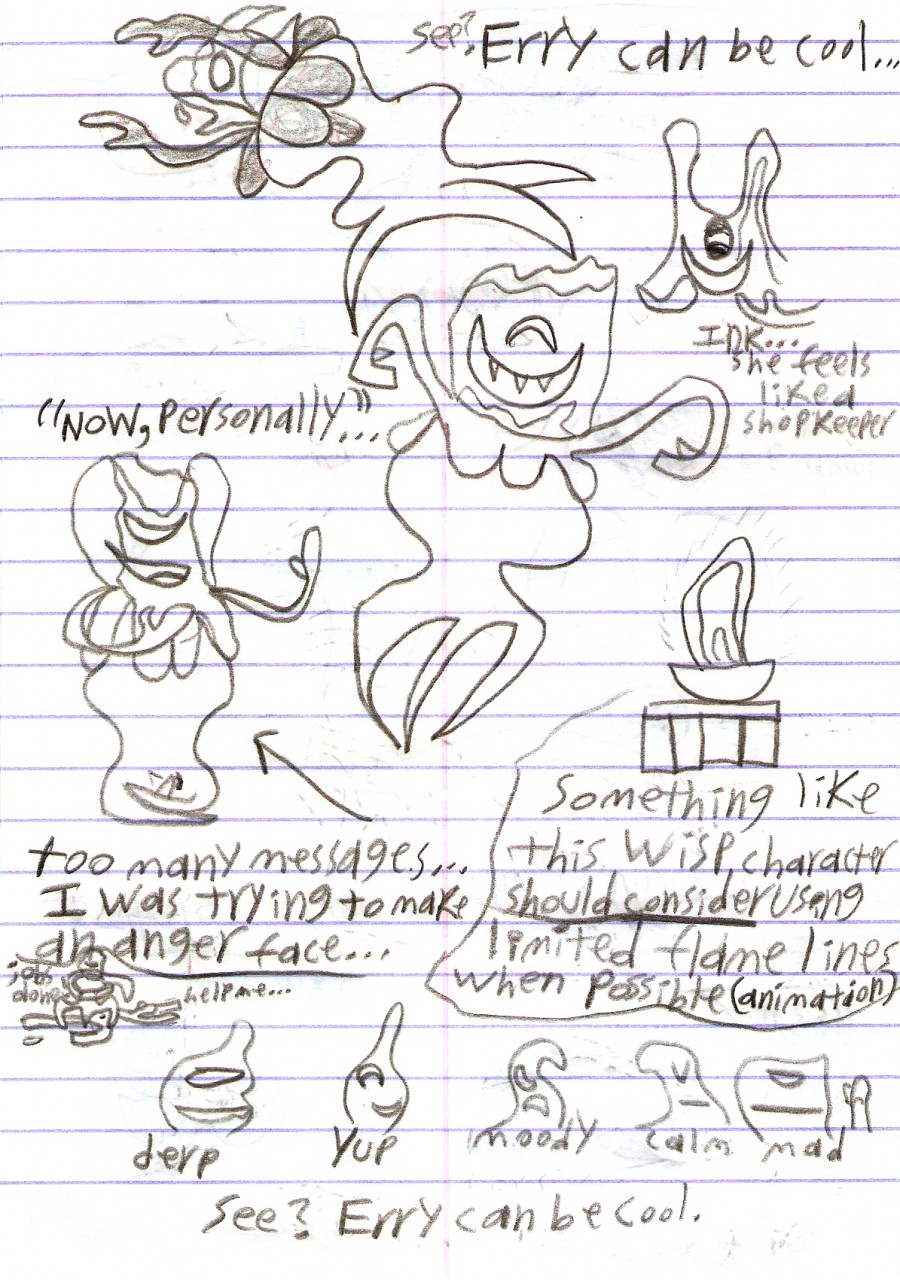 see? Erry can be cool...
IDK...
she feels
liked
shopkeeper
"Now, personally"...
something like
this wisp character
should consider useng
limited flame lines
when possible (animation)
too many messages...
I was trying to make
an anger face...
help me...
derp
yup
moody
calm
mad
see? Erry can be cool.